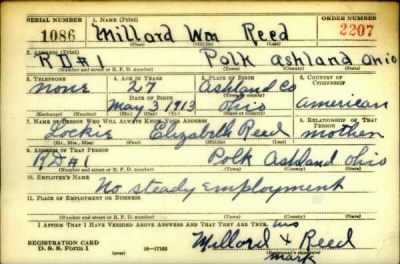 SERIAL NUMBER 1. NAME (Print) ORDER NUMBER
1086 Millard Wm Reed 2207
(First) (Middle) (Last)
2. ADDRESS (Print)
R D #1 Polk Ashland Ohio
(Number and street or R. F. D. number) (Town) (County) (State)
3. TELEPHONE 4. AGE IN YEARS 5. PLACE OF BIRTH 6. COUNTRY OF CITIZENSHIP
none 27 Ashland Co
DATE OF BIRTH (Town or county)
May 3 1913 Ohio American
(Exchange) (Number) (Mo.) (Day) (Yr.) (State or country)
7. NAME OF PERSON WHO WILL ALWAYS KNOW YOUR ADDRESS 8. RELATIONSHIP OF THAT PERSON
Lockie Elizabeth Reed mother
(Mr., Mrs., Miss) (First) (Middle) (Last)
9. ADDRESS OF THAT PERSON
R D #1 Polk Ashland Ohio
(Number and street or R. F. D. number) (Town) (County) (State)
10. EMPLOYER'S NAME
No steady employment
11. PLACE OF EMPLOYMENT OR BUSINESS
(Number and street or R. F. D. number) (Town) (County) (State)
I AFFIRM THAT I HAVE VERIFIED ABOVE ANSWERS AND THAT THEY ARE TRUE.
his
REGISTRATION CARD Millard X Reed
D. S. S. Form 1 16-17105 mark